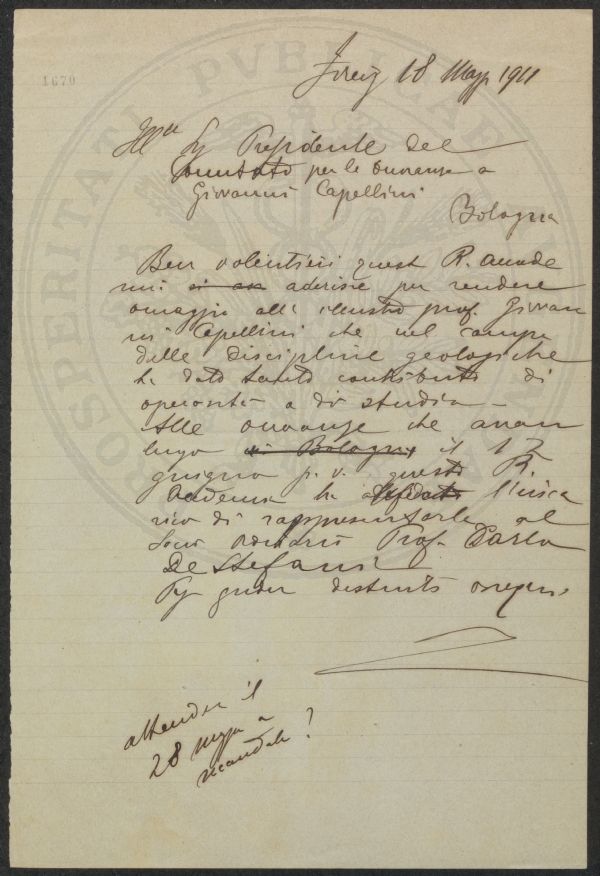 1670
PROSPERITATI PVBLICAE
Firenz 18 Magg 1911
Ill.mo Sig Presidente del
Comitato per le onoranze a
Giovanni Capellini
Bologna
Ben volentieri questa R. Accade
mia aderisce per rendere
omaggio all' illustre prof. Giovan
ni Capellini che nel campo
delle discipline geologiche
ha dato tanto contributo di
operosità e di studio -
Alle onoranze che avran
luogo di Bologna il 17
giugno p. v. questa R.
Accademia ha affidato l'inca
rico di rappresentarla al
Socio ordinario Prof. Carlo
De Stefani
Pg gradir distinti ossequi
attender il
28 magg a
?